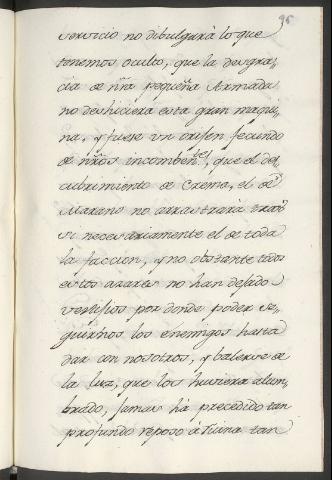 95
servicio no dibulgara lo que
tenemos oculto, que la desgra,
cia de nrã pequeña Armada
no deshiciera esta gran maqui,
na, y fuese un origen fecundo
de nrõs incombenᵗᵉˢ, que el des,
cubrimiento de Crema, el de
Marano no arrastrarà tras
si necesariamente el de toda
la faccion, y no obstante todos
estos azares no han dejado
vestijios por donde poder se,
guirnos los enemigos hasta
dar con nosotros, y balerse de
la luz, que los huviera alum,
brado, jamas hà precedido tan
profundo reposo à Ruina tan